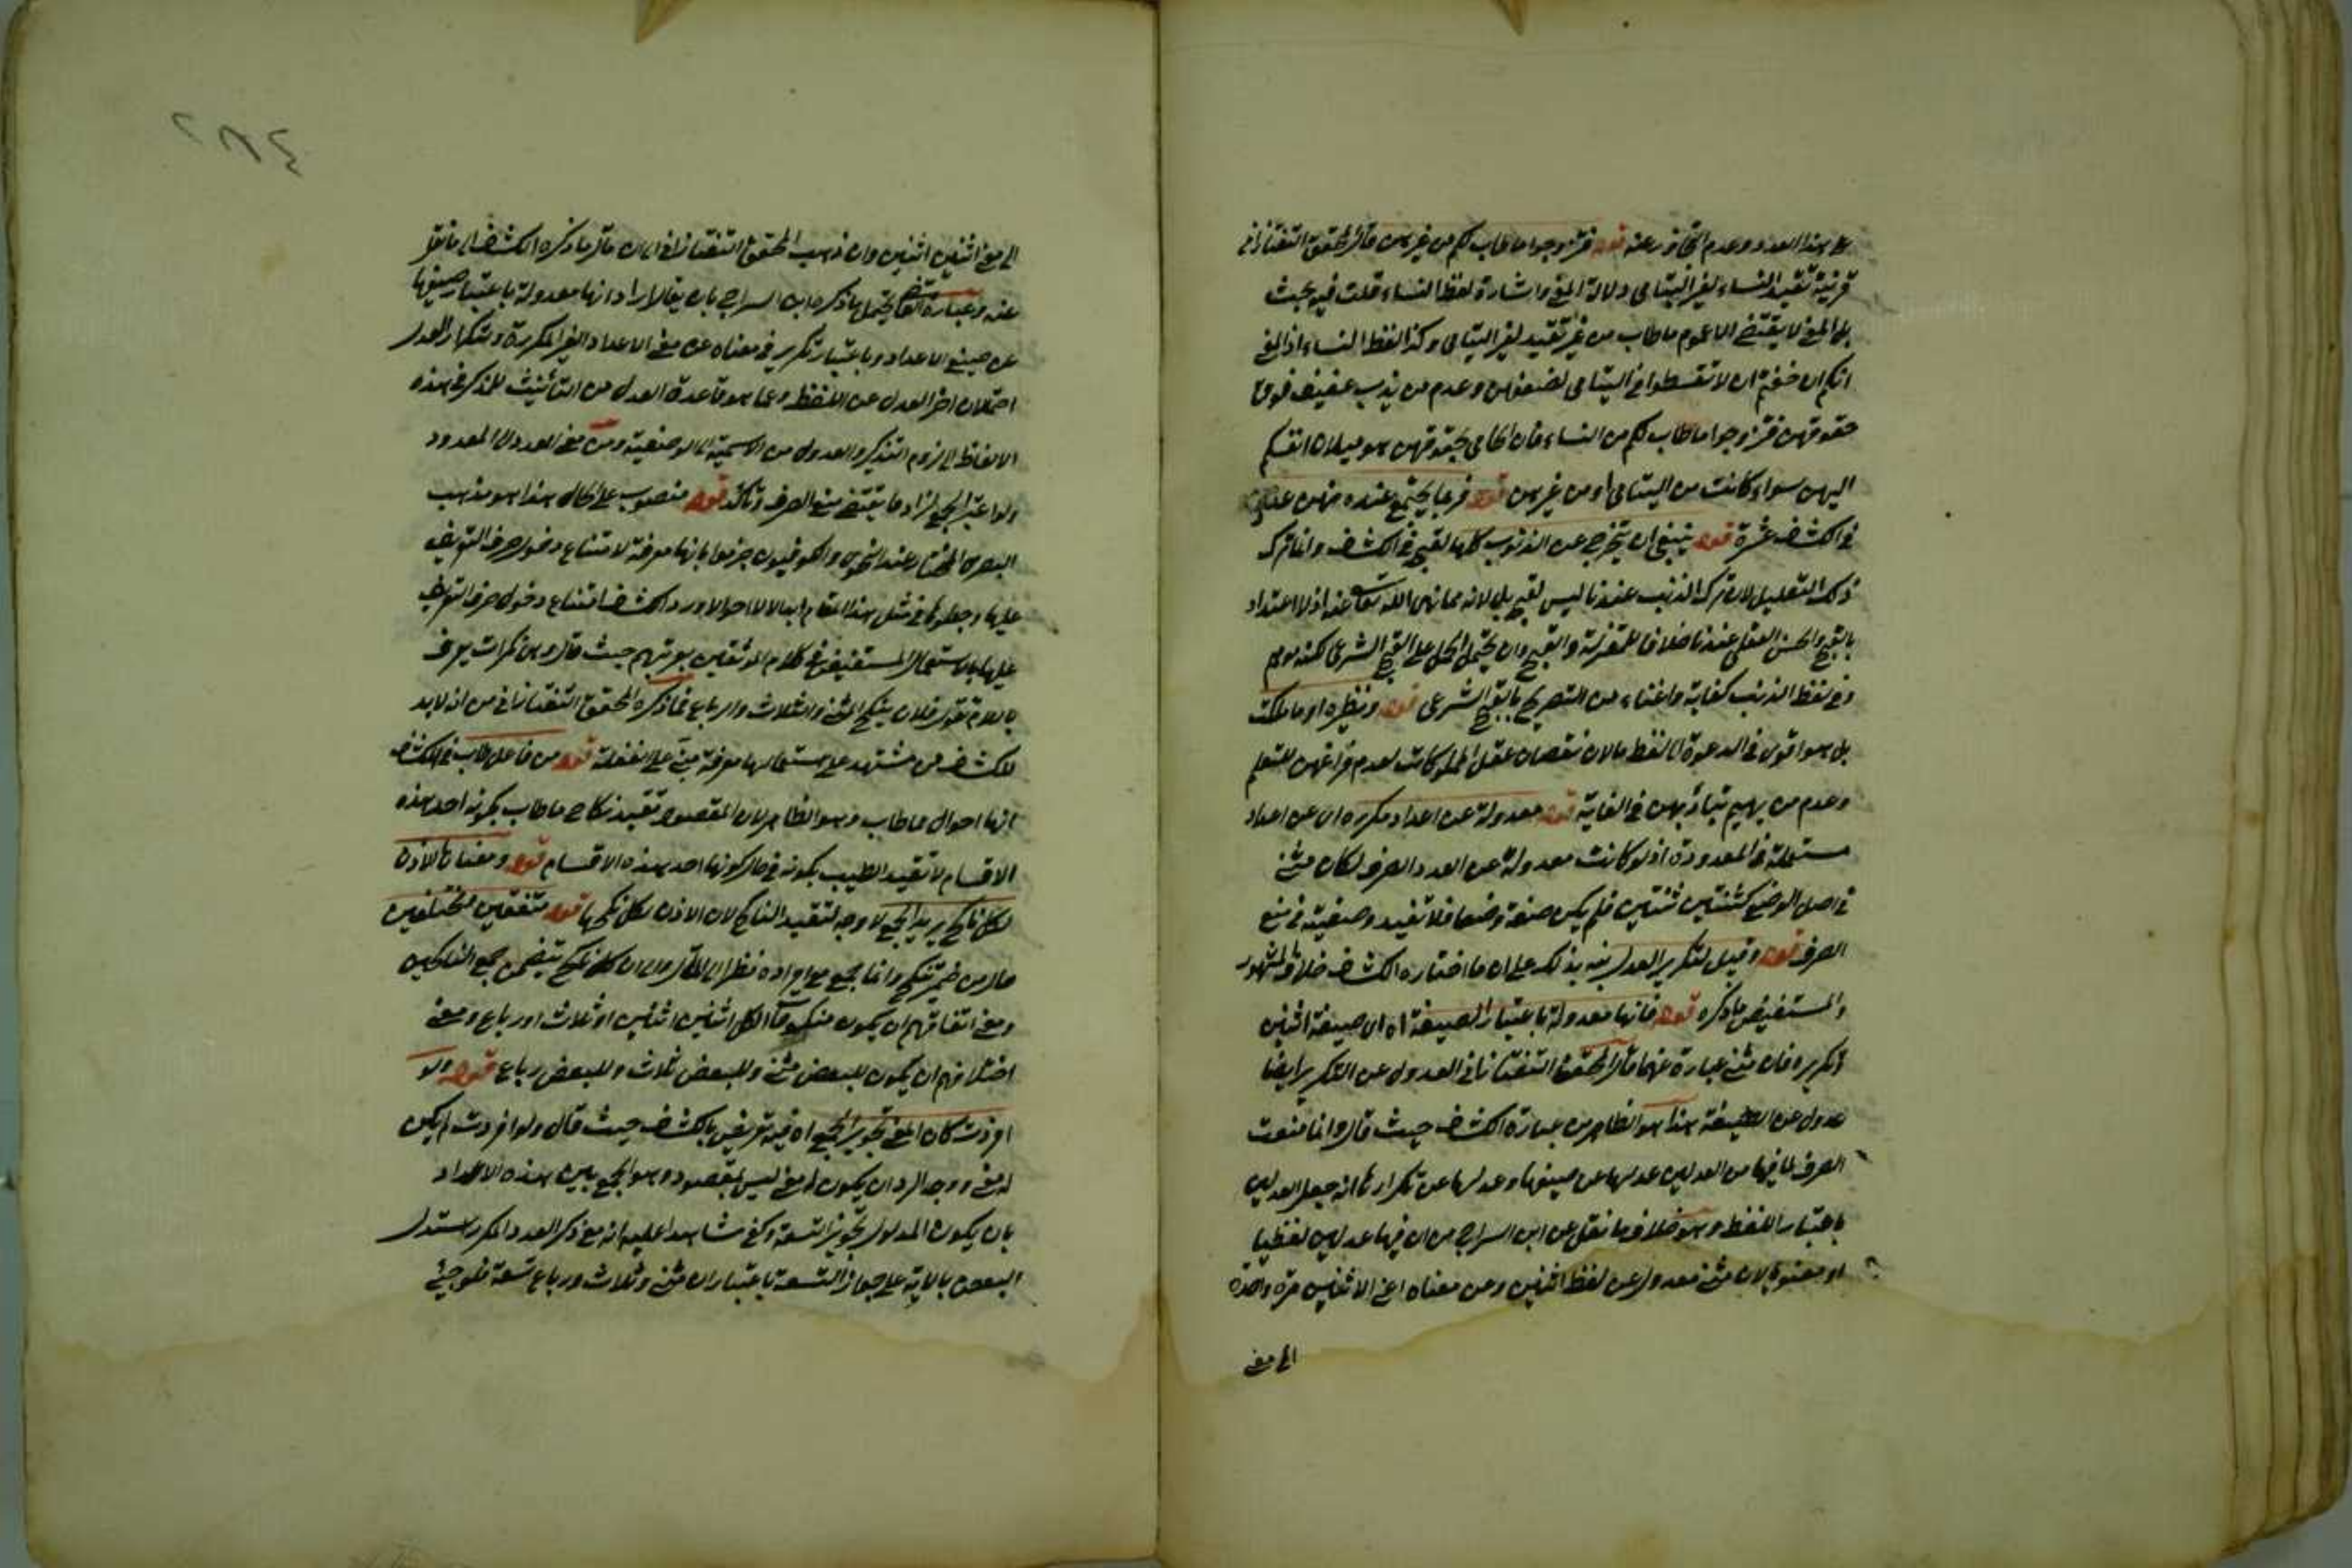 على هذا العدد وعدم التجاوز عنه قوله فتزوجوا ما طاب لكم من غيرهن قال المحقق التفتازاني
قرينة تقييد النساء بغير اليتامى دلالة المعنى واشارة لفظ النساء قلت فيه بحث
بل المعنى لا يقتضي الا عموم ما طاب من غير تقييد بغير اليتامى وكذا لفظ النساء اذ المعنى
انكم ان خفتم ان لا تقسطوا في اليتامى لضعفهن وعدم من يذب عنهن فوق
حقوقهن فتزوجوا ما طاب لكم من النساء فان الحامي بحقوقهن هو ميلان انفسكم
اليهن سواء كانت من اليتامى او من غيرهن قوله فربما يجتمع عنده منهن عدد
في الكشاف عشرة قوله ينبغي ان يتحرج عن الذنوب كلها لقبحه في الكشاف وانما ترك
ذلك التعليل لان ترك الذنب عندنا ليس لقبحه بل لانه مما نهى الله تعالى عنه اذ لا اعتداد
بالقبح والحسن العقلي عندنا خلافا للمعتزلة والقبح وان يحتمل الحمل على القبح الشرعي لكنه يوهم
وفي لفظ الذنب كفاية واغناء عن التصريح بالقبح الشرعي قوله ونظيره او ما ملكت
بل هو اقوى في الدعوة الى لفظ ما لان نقصان عقل المملوكات لعدم فراغهن للتعلم
وعدم من يهيم بتأديبهن في الغاية قوله معدولة عن اعداد مكررة اي عن اعداد
مستعملة في المعدودة اذ لو كانت معدولة عن العدد الصرف لكان مثنى
في اصل الوضع كثنتين ثنتين فلم يكن صفة وضعا فلا تفيد وصفيته في منع
الصرف قوله وقيل لتكرير العدل نبه بذلك على ان ما اختاره الكشاف خلاف المشهور
والمستفيض ما ذكره قوله فانها معدولة باعتبار الصيغة اه اي صيغة اثنين
وتكريره فان مثنى عبارة عنهما قال المحقق التفتازاني العدول عن التكرير ايضا
عدول عن الصيغة هذا هو الظاهر من عبارة الكشاف حيث قال وانما منعت
الصرف لما فيها من العدلين عدلها عن صيغها وعدلها عن تكرارها انه جعل العدلين
باعتبار اللفظ وهو خلاف ما نقل عن ابن السراج من ان فيها عدلين لفظيا
او معنويا لان مثنى معدول عن لفظ اثنين وعن معناه اعني الاثنين مرة واحدة
الى معنى
الى معنى اثنين اثنين وان ذهب المحقق التفتازاني الى ان مآل ما ذكره الكشاف الى ما نقل
عنه وعبارة القاضي يحتمل ما ذكره ابن السراج بان يقال اراد انها معدولة باعتبار صيغها
عن صيغ الاعداد وباعتبار تكرير في معناه عن معنى الاعداد الغير المكررة وتكرار العدل
احتمالان اخر العدل عن اللفظ وعما هو قاعدة العدل من التأنيث للمذكر في هذه
الالفاظ الى لزوم التذكير والعدول من الاسمية الى الوصفية ومن معنى العدد الى المعدود
ولو اعتبر الجميع لزاد ما يقتضي منع الصرف وتأكد قوله منصوب على الحال هذا هو مذهب
البصري المختار عند النحوي والكوفيون جزموا بانها معرفة لامتناع دخول حرف التعريف
عليها وجعلوها في مثل هذا المقام ابدالا لا احوالا ورد الكشاف امتناع دخول حرف التعريف
عليها بالاستعمال المستفيض في كلام الموثقين بعربيتهم حيث قال وهن نكرات يعرف
باللام تقول فلان ينكح المثنى والثلاث والرباع فما ذكره المحقق التفتازاني من انه لا بد
للكشاف من مستشهد على استعمالها معرفة مبني على الغفلة قوله من فاعل طاب في الكشاف
انها احوال مما طاب وهو الظاهر لان المقصود تقييد نكاح ما طاب بكونه احد هذه
الاقسام لا تقييد الطيب بكونه في حال كونها احد هذه الاقسام قوله ومعناها الاذن
لكل ناكح يريد الجمع لا وجه لتقييد الناكح لان الاذن لكل نكحها قوله متفقين مختلفين
حال من ضمير تنكح وانما جمع مع افراده نظرا الى المآل الى ان كل ناكح يتضمن جميع الناكحين
ومعنى اتفاقهم ان يكون منكوحا الكل اثنين اثنين او ثلاث او رباع ومعنى
اختلافهم ان يكون للبعض مثنى وللبعض ثلاث وللبعض رباع قوله ولو
افردت كان المعنى تجويز الجمع اه فيه تعريض بالكشاف حيث قال ولو افردت لم يكن
له معنى ووجه الرد ان يكون له معنى ليس بمقصود وهو الجمع بين هذه الاعداد
بان يكون المدلول تجويز التسعة وكفى شاهدا عليه انه مع ذكر العدد المكرر استدل
البعض بالاية على جواز التسعة باعتبار ان مثنى وثلاث ورباع تسعة فلو جيء